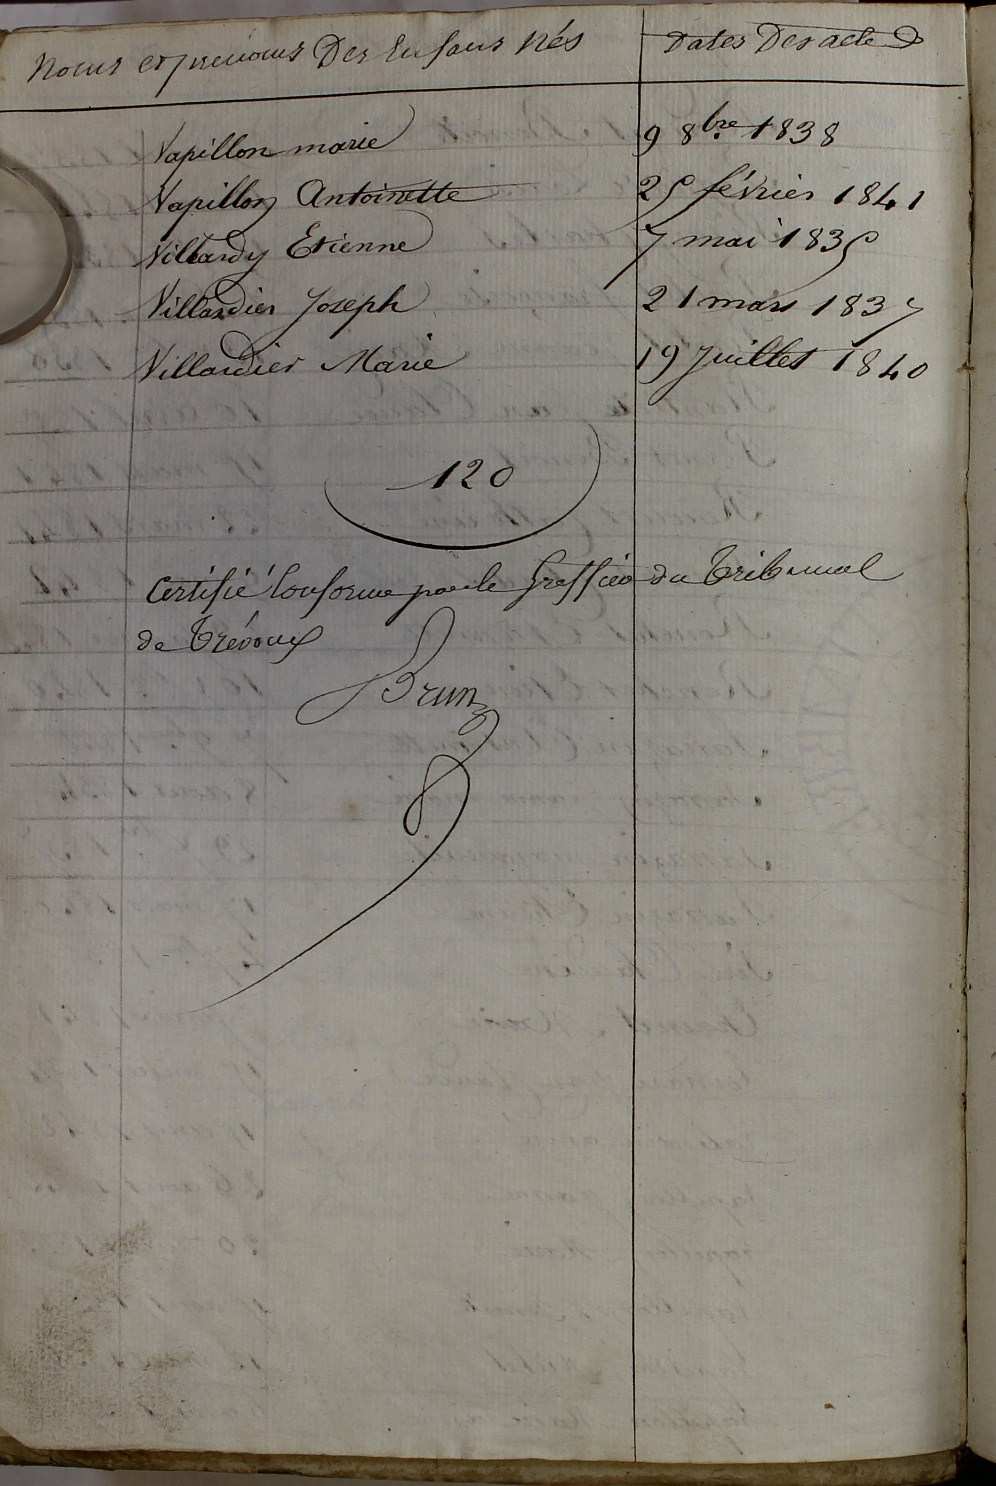 Noms et prenoms Des Enfans Nés Dates Des actes
Vapillon marie 9 8bre 1838
Vapillon Antoinette 25 février 1841
Villardy Etienne 7 mai 1835
Villardier Joseph 21 mars 1837
Villardier Marie 19 Juillet 1840
120
Certifié Conforme par le Greffier du Tribunal
de Trévoux
Brun